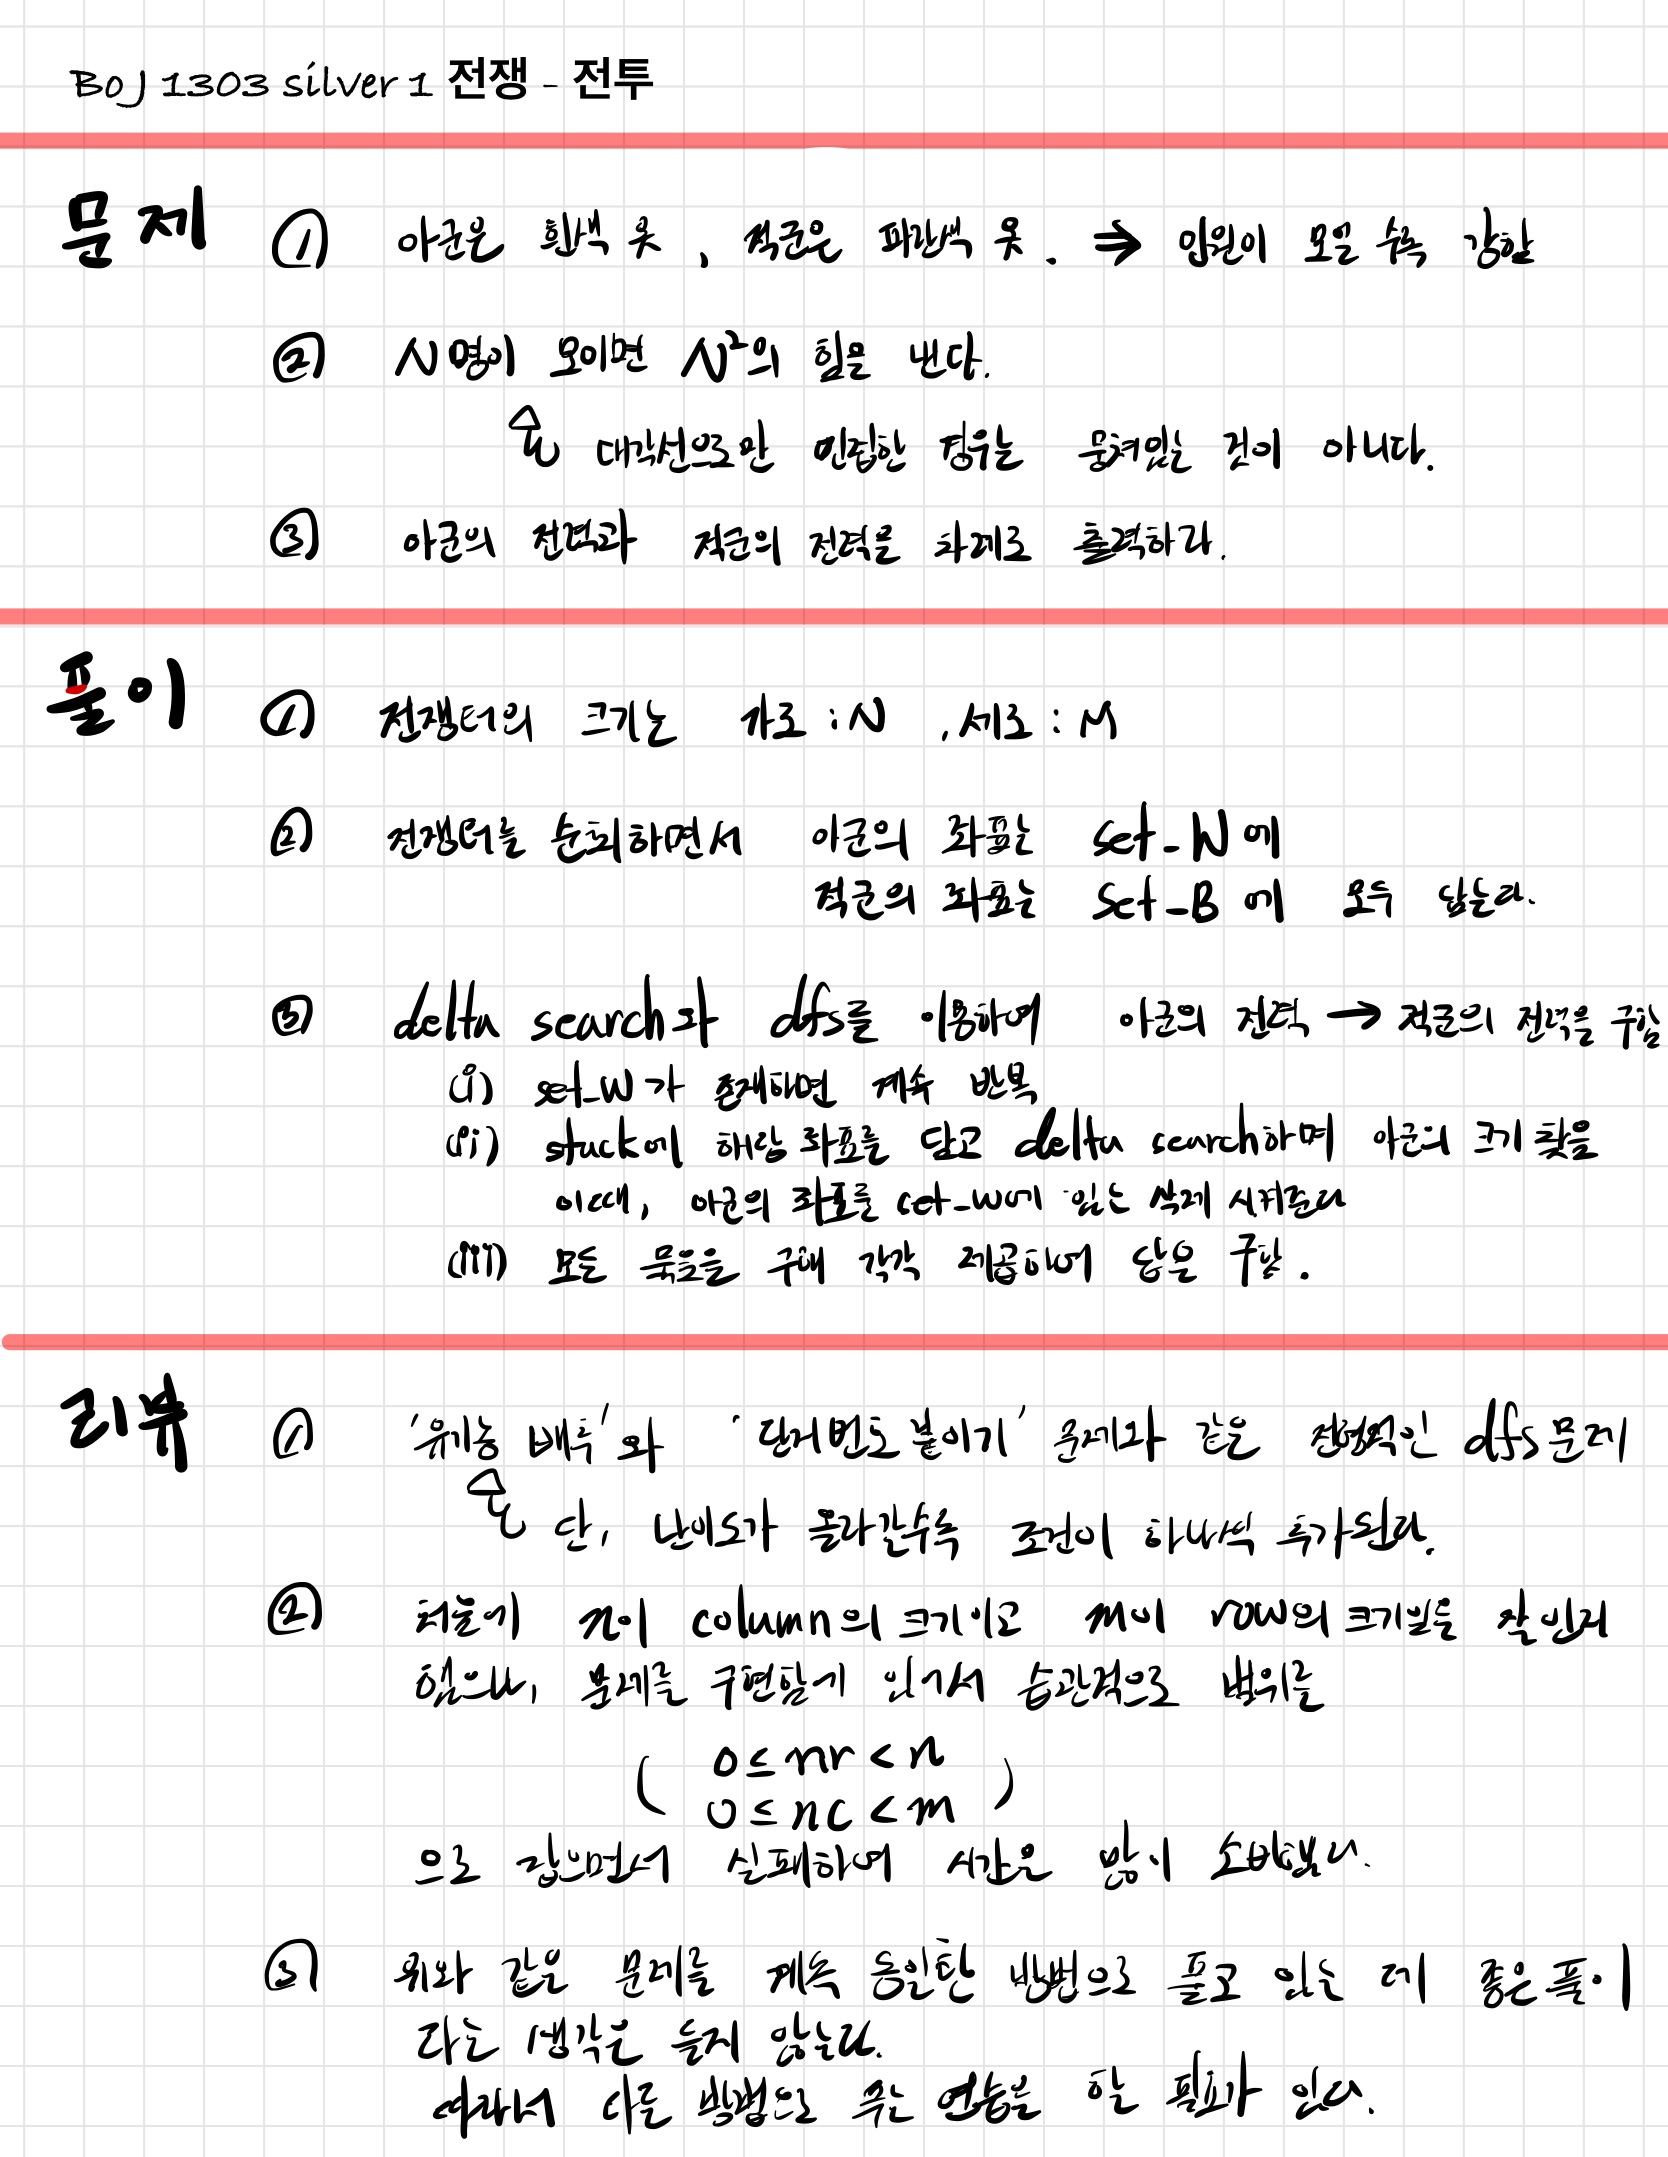 BoJ 1303 silver 1 전쟁 - 전투
문제 ① 아군은 흰색 옷, 적군은 파란색 옷. ⇒ 인원이 모일 수록 강함
② N명이 모이면 N²의 힘을 낸다.
대각선으로만 인접한 경우는 뭉쳐있는 것이 아니다.
③ 아군의 전력과 적군의 전력을 차례로 출력하라.
풀이 ① 전쟁터의 크기는 가로 : N , 세로 : M
② 전쟁터를 순회하면서 아군의 좌표는 set_W에
적군의 좌표는 set_B에 모두 담는다.
③ delta search와 dfs를 이용하여 아군의 전력 → 적군의 전력을 구함
(i) set_W가 존재하면 계속 반복
(ii) stack에 해당 좌표를 담고 delta search하며 아군의 크기 찾음
이때, 아군의 좌표를 set_W에 있는 삭제 시켜준다
(iii) 모든 묶음을 구해 각각 제곱하여 답을 구함.
리뷰 ① '유기농 배추'와 '단지번호붙이기' 문제와 같은 전형적인 dfs문제
단, 난이도가 올라갈수록 조건이 하나씩 추가된다.
② 처음에 n이 column의 크기이고 m이 row의 크기임을 잘 인지
했으나, 문제를 구현함에 있어서 습관적으로 범위를
( 0 ≤ nr < n
0 ≤ nc < m )
으로 잡으면서 실패하여 시간을 많이 소비했다.
③ 위와 같은 문제를 계속 동일한 방법으로 풀고 있는 데 좋은 풀이
라는 생각은 들지 않는다.
따라서 다른 방법으로 푸는 연습을 할 필요가 있다.